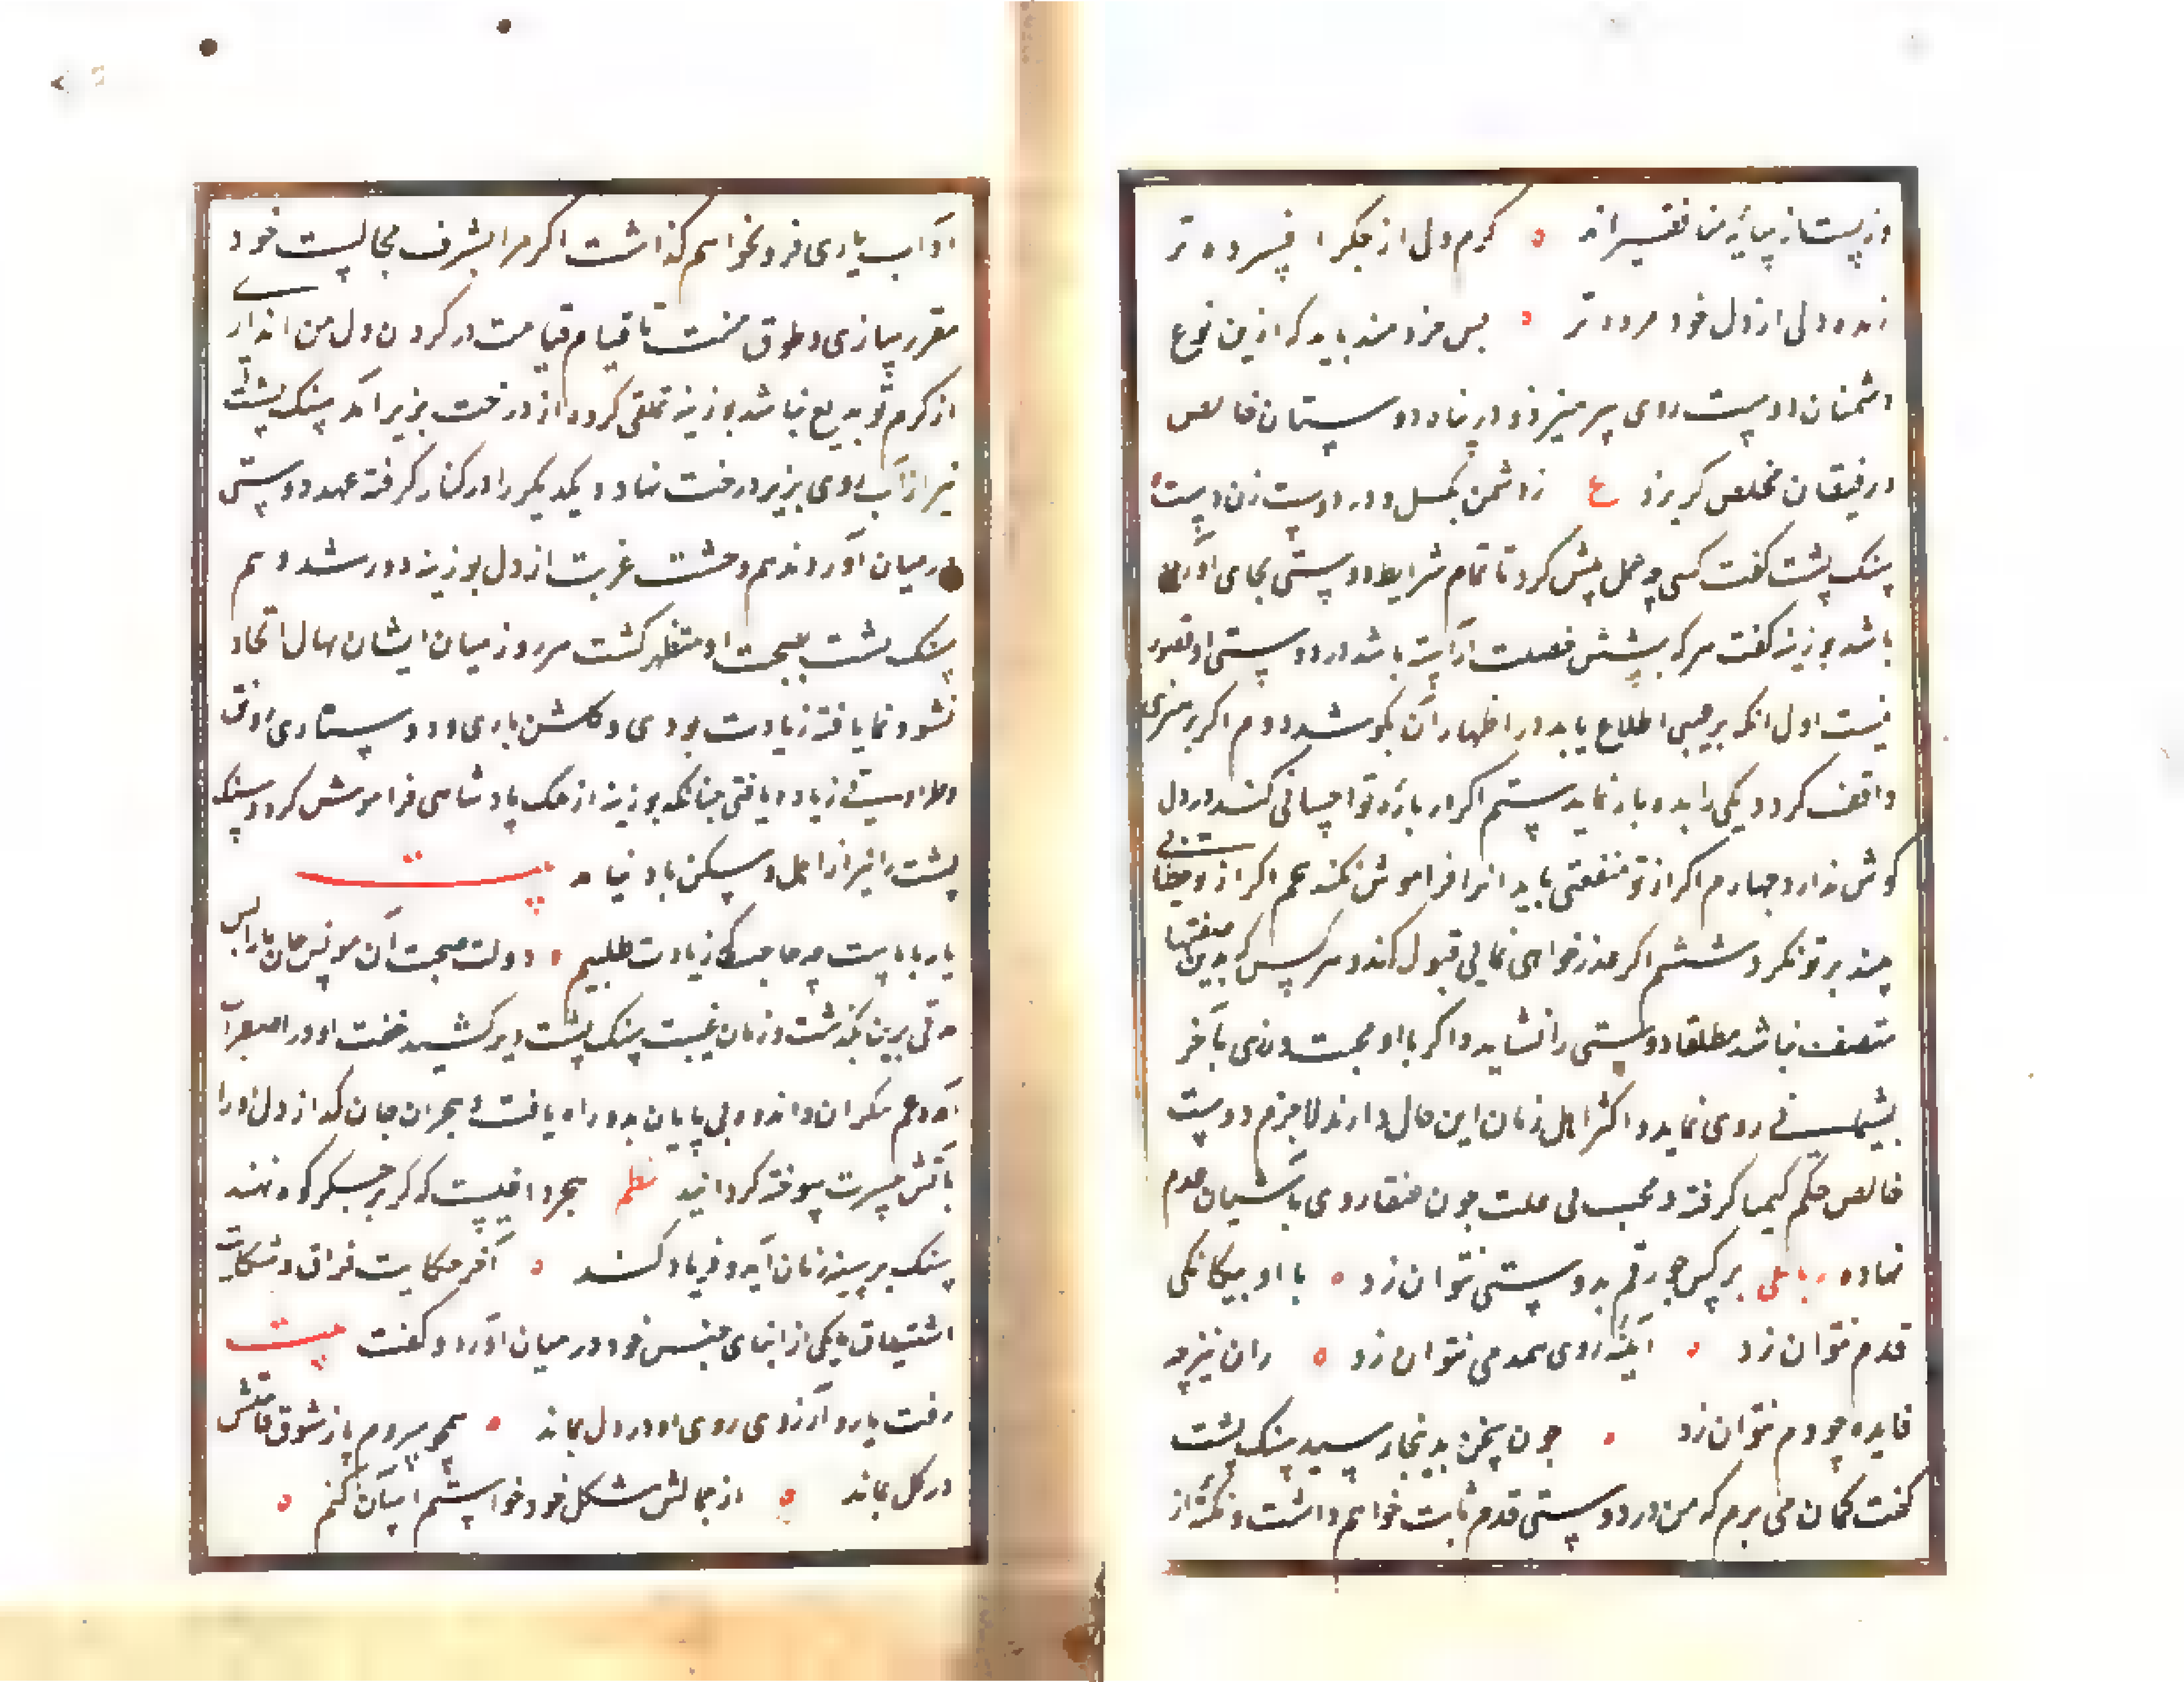 کرم دل از جگر افسرده تر
زنده ولی از دل خود مرده تر ه پس خردمند باید که ازین نوع
دشمنان دوست روی پرهیزد و در پناه دوستان خالص
و رفیقان مخلص گریزد ع ز دشمن بگسل و در دوست زن دست
سنک پشت کفت کسی چه عمل پیش کیرد تا تمام شرایط دوستی بجای آورده
باشد بوزینه کفت هرکه بشش خصلت آراسته باشد در دوستی او قصور
نیست اول انکه بر عیبی اطلاع یابد در اظهار آن نکوشد دوم اکر بر هنری
واقف کردد یکی را بده باز نماید سیم اکر در باره تو احسانی کند در دل
کوش ندارد چهارم اکر از تو منفعتی یابد انرا فراموش نکند پنجم اکر از تو خطائی
بیند بر تو نکیرد ششم اکر عذر خواهی نمائی قبول کند و هر کس که بدین صفتها
متصف نباشد مطلقا دوستی را نشاید و اکر با او محبت ورزی بآخر
پشیمانی روی نماید و اکثر اهل زمان این حال دارند لاجرم دوست
خالص حکم کیمیا کرفته و محب بی علت چون عنقا روی بآشیان عدم
نهاده رباعی بر کس چو رقم بدوستی نتوان زد ه با او بیکانکی
قدم نتوان زد ه آینه روی همدمی نتوان زد ه زان نیز چه
فایده چو دم نتوان زد ه چون سخن بدینجا رسید سنک پشت
کفت کمان می برم که من در دوستی قدم ثابت خواهم داشت و نکته از
آداب یاری فرو نخواهم کذاشت اکر مرا بشرف مجالست خود
مقرر سازی و طوق منت تا قیام قیامت در کردن دل من اندازی
از کرم تو بدیع نباشد بوزینه تملقی کرده از درخت بزیر آمد و سنک پشت
نیز از آب روی بزیر درخت نهاد و یکدیکر را در کنار کرفته عهد دوستی
در میان آوردند هم وحشت غربت از دل بوزینه دور شد و هم
سنک پشت بصحبت او مستظهر کشت هر روز میان ایشان نهال اتحاد
نشو و نما یافته زیادت بودی و کلشن یاری و دوستاری رونق
و طراوتی زیاده یافتی چنانکه بوزینه از ملک پادشاهی فراموش کرد و سنک
پشت را نیز از اهل و مسکن یاد نیامد بیت
یار با ماست چه حاجت که زیادت طلبیم ه دولت صحبت آن مونس جان ما را بس
مدتی برین بگذشت و زمان غیبت سنک پشت دیر کشید جفت او در اضطراب
آمد و غم بیکران و اندوه بی پایان بدو راه یافت هجران جان کداز دل او را
بآتش حسرت سوخته کردانید نظم هجر داغیست که کر بر جکر کوه نهند
سنک بر سینه زنان آید و فریاد کند ه آخر حکایت فراق و شکایت
اشتیاق بیکی از ابنای جنس خود در میان آورد و کفت بیت
رفت یار و آرزوی روی او در دل بماند ه همچو سروم پا ز شوق قامتش
در کل بماند ه از خیالش مشکل خود خواستم آسان کنم ه